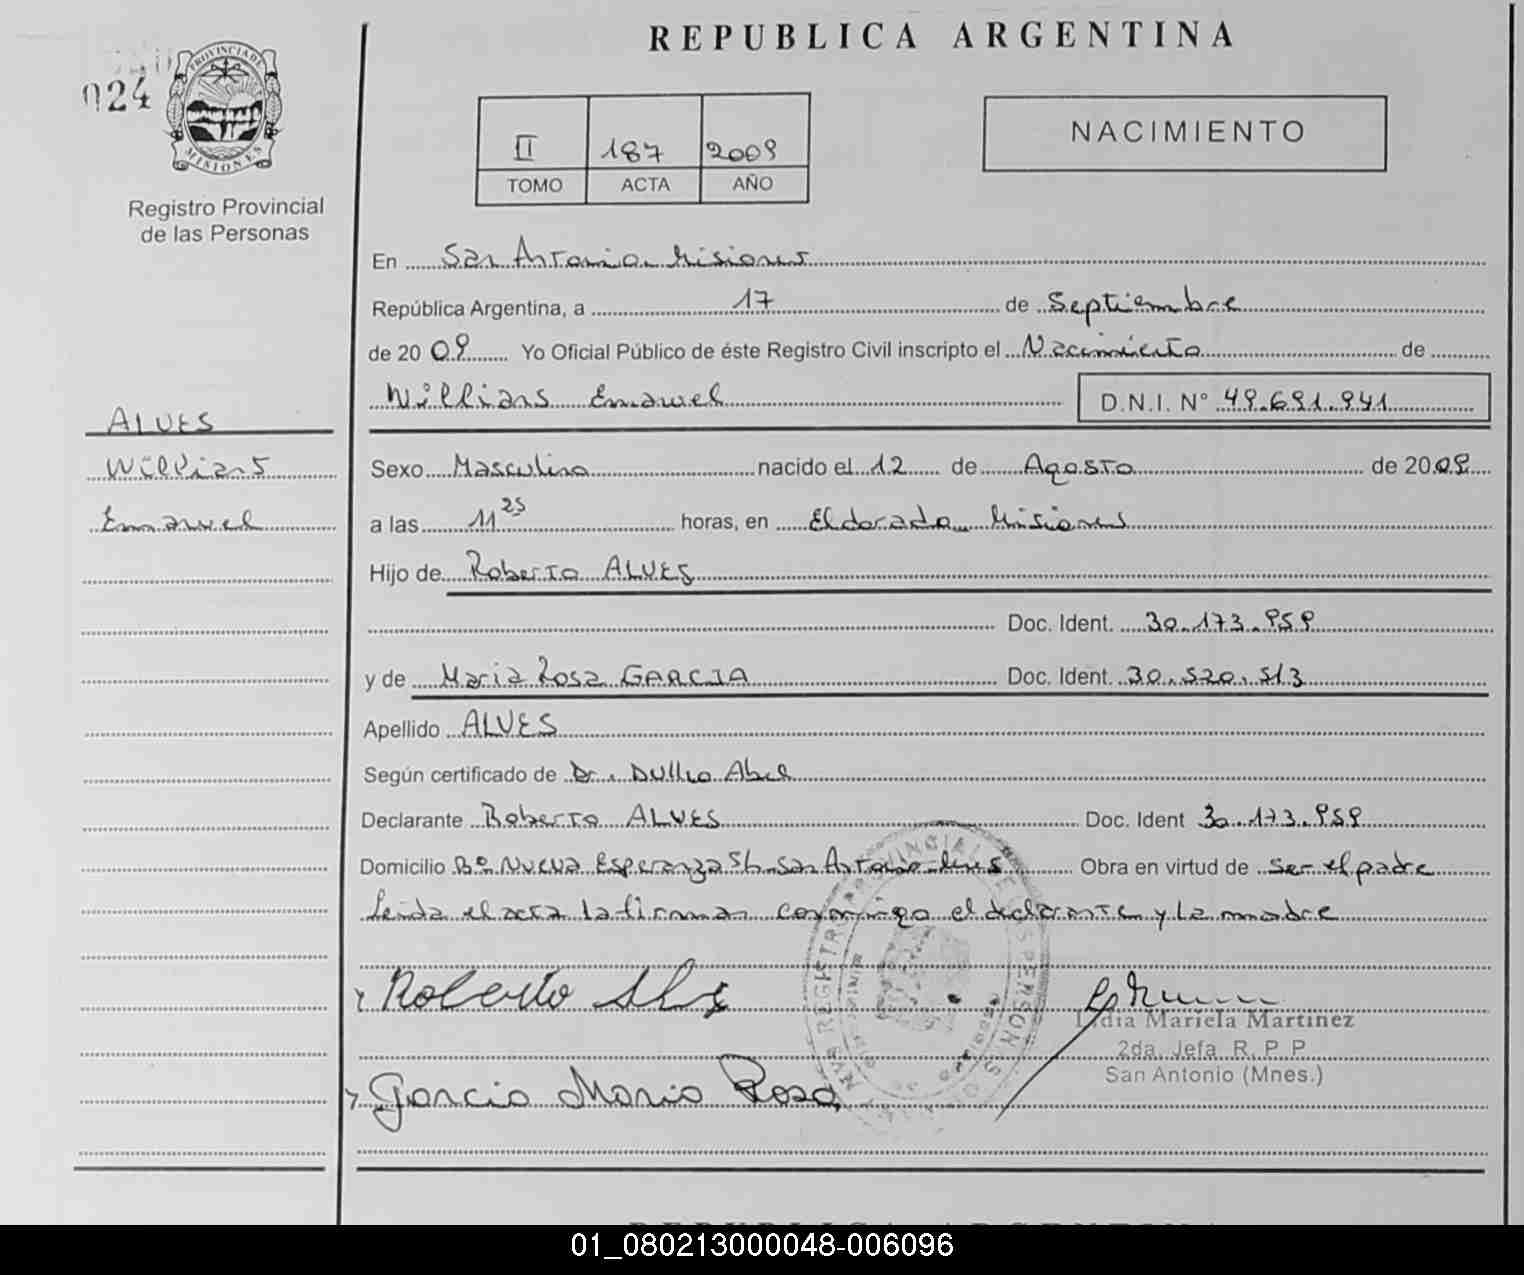 REPUBLICA ARGENTINA
024
PROVINCIA DE MISIONES
Registro Provincial
de las Personas
II 187 2009
TOMO ACTA AÑO
NACIMIENTO
En San Antonio Misiones
República Argentina, a 17 de Septiembre
de 2009 Yo Oficial Público de éste Registro Civil inscripto el Nacimiento de
Willians Emanuel D.N.I. N° 49.691.941
ALVES
Willians
Emanuel
Sexo Masculino nacido el 12 de Agosto de 2009
a las 11 25 horas, en Eldorado Misiones
Hijo de Roberto ALVES
Doc. Ident. 30.173.959
y de Maria Rosa GARCIA Doc. Ident. 30.520.513
Apellido ALVES
Según certificado de Dr. Dullio Abel
Declarante Roberto ALVES Doc. Ident 30.173.959
Domicilio B° Nueva Esperanza S/n San Antonio Mnes Obra en virtud de ser el padre
Leida el acta la firman conmigo el declarante y la madre
Roberto Alves
Lidia Mariela Martinez
2da. Jefa R. P. P.
San Antonio (Mnes.)
Garcia Maria Rosa
REPUBLICA ARGENTINA
01_080213000048-006096